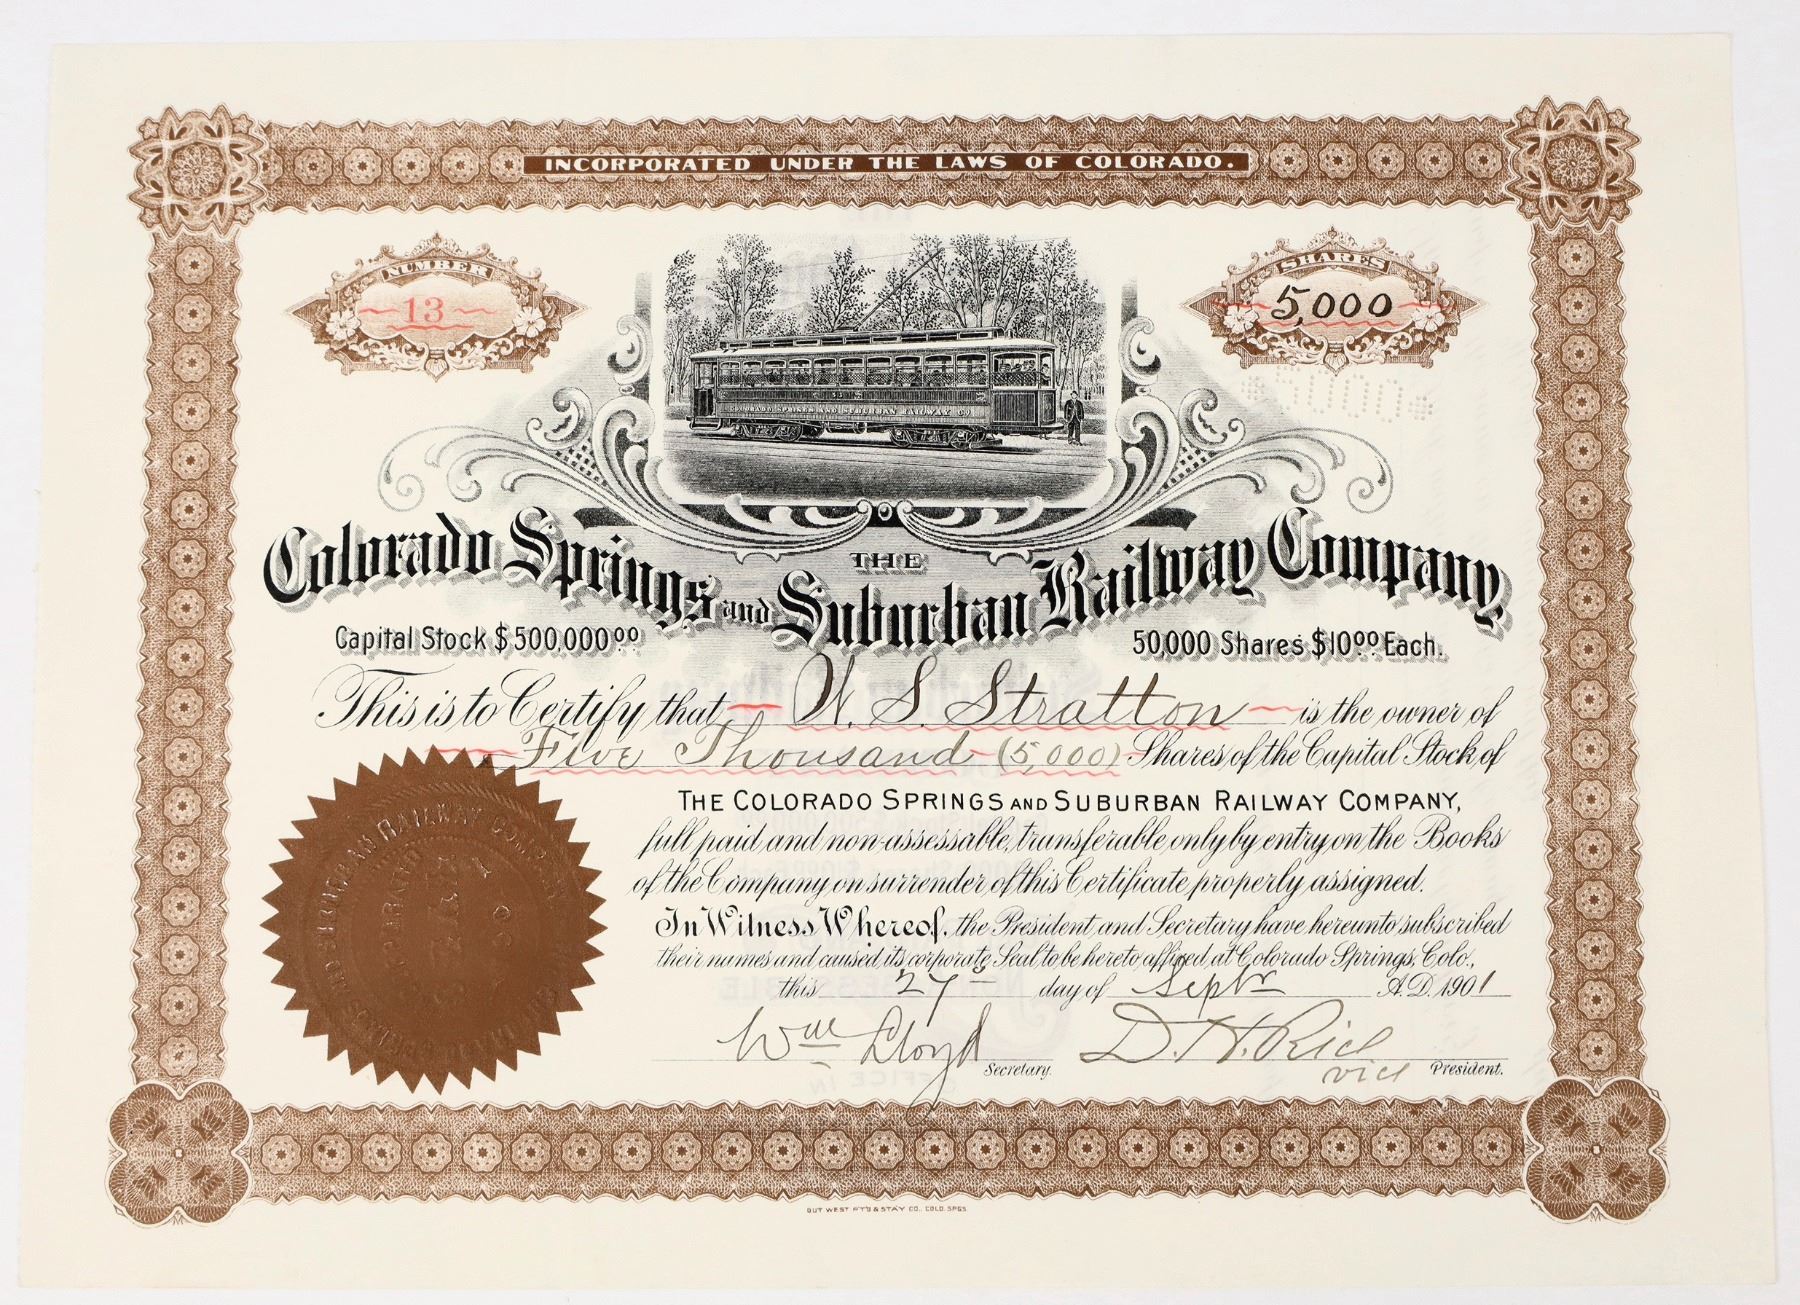 INCORPORATED UNDER THE LAWS OF COLORADO.
NUMBER
13
SHARES
5,000
$5,000$
COLORADO SPRINGS AND SUBURBAN RAILWAY CO
THE
Colorado Springs and Suburban Railway Company,
Capital Stock $500,000.00
50,000 Shares $10.00 Each.
This is to Certify that W. S. Stratton is the owner of
Five Thousand (5,000) Shares of the Capital Stock of
THE COLORADO SPRINGS AND SUBURBAN RAILWAY COMPANY,
full paid and non-assessable, transferable only by entry on the Books
of the Company on surrender of this Certificate properly assigned.
In Witness Whereof, the President and Secretary have hereunto subscribed
their names and caused its corporate Seal to be hereto affixed, at Colorado Springs, Colo.,
this 27th day of Septr A.D. 1901
Wm Lloyd
Secretary.
D. H. Rice
vice President.
OUT WEST PT'G & STA'Y CO., COLO. SPGS.